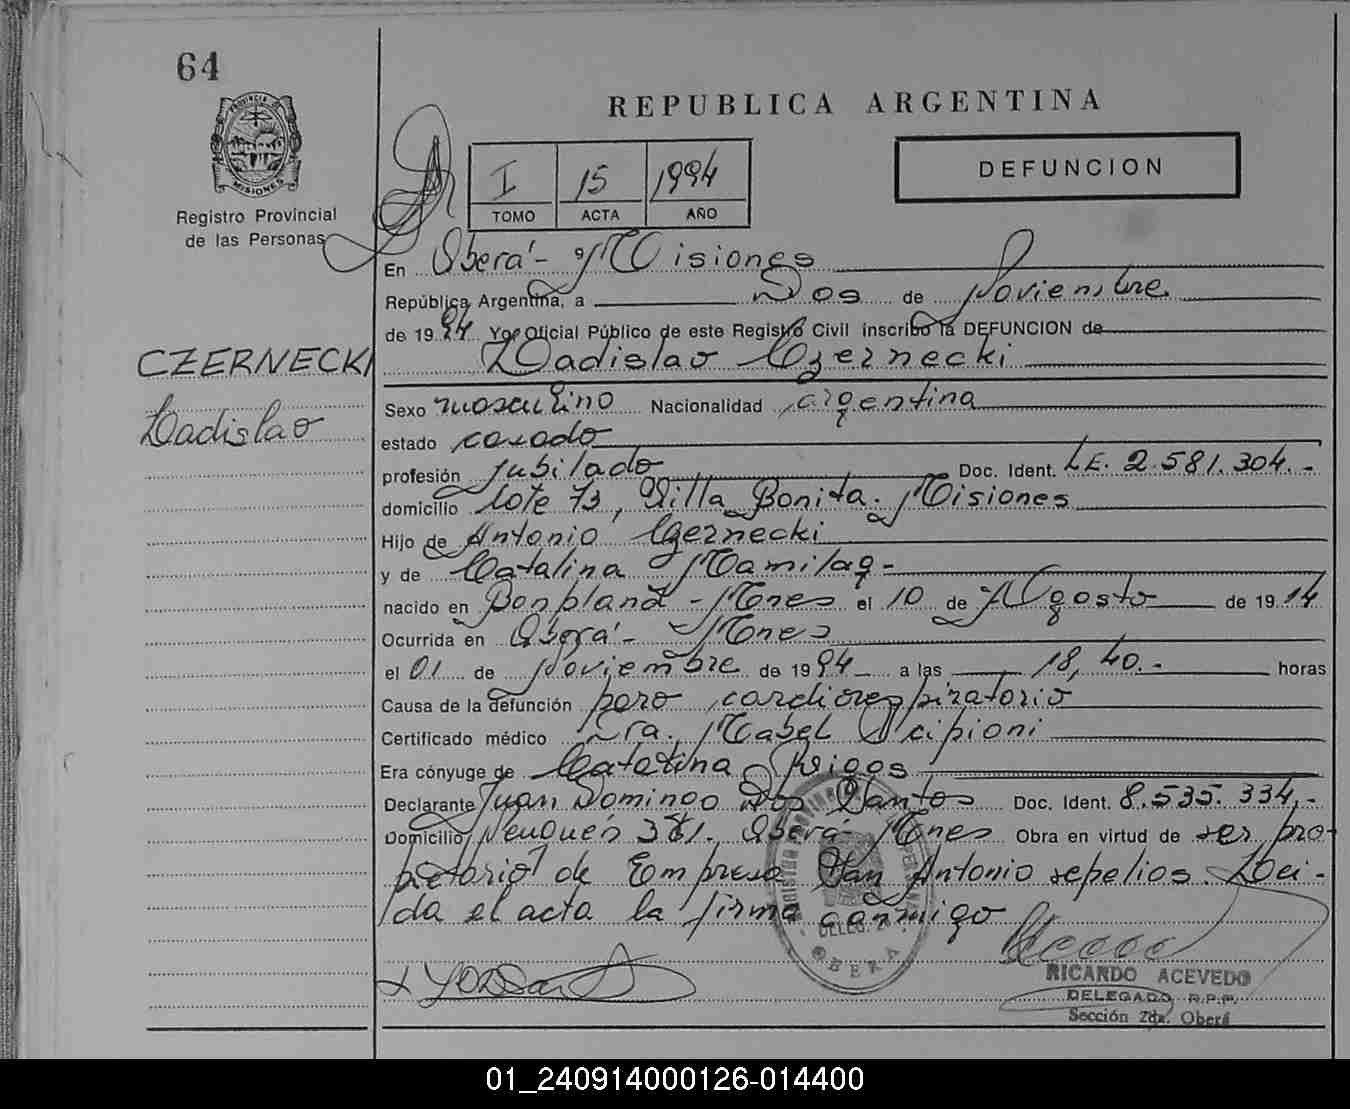 64
REPUBLICA ARGENTINA
PROVINCIA DE
MISIONES
Registro Provincial
de las Personas
I 15 1994
TOMO ACTA AÑO
DEFUNCION
En Oberá - Misiones
República Argentina, a Dos de Noviembre
de 1994 Yo, Oficial Público de este Registro Civil inscribo la DEFUNCION de
Ladislao Czernecki
CZERNECKI
Ladislao
Sexo masculino Nacionalidad argentina
estado casado
profesión jubilado Doc. Ident. L.E. 2.581.304.-
domicilio Lote 73, Villa Bonita. Misiones
Hijo de Antonio Czernecki
y de Catalina Mamilaq -
nacido en Bonpland - Mnes el 10 de Agosto de 1914
Ocurrida en Oberá - Mnes
el 01 de Noviembre de 1994 a las 18,40.- horas
Causa de la defunción paro cardiorespiratorio
Certificado médico Dra. Mabel Scipioni
Era cónyuge de Catalina
Declarante Juan Domingo Dos Santos Doc. Ident. 8.535.334,-
Domicilio Neuquén 381. Oberá - Mnes Obra en virtud de ser pro-
pietario de Empresa San Antonio sepelios. Leí-
da el acta la firma conmigo
DELEG. 2a
OBERA
RICARDO ACEVEDO
DELEGADO R.P.P.
Sección 2da. Oberá
01_240914000126-014400